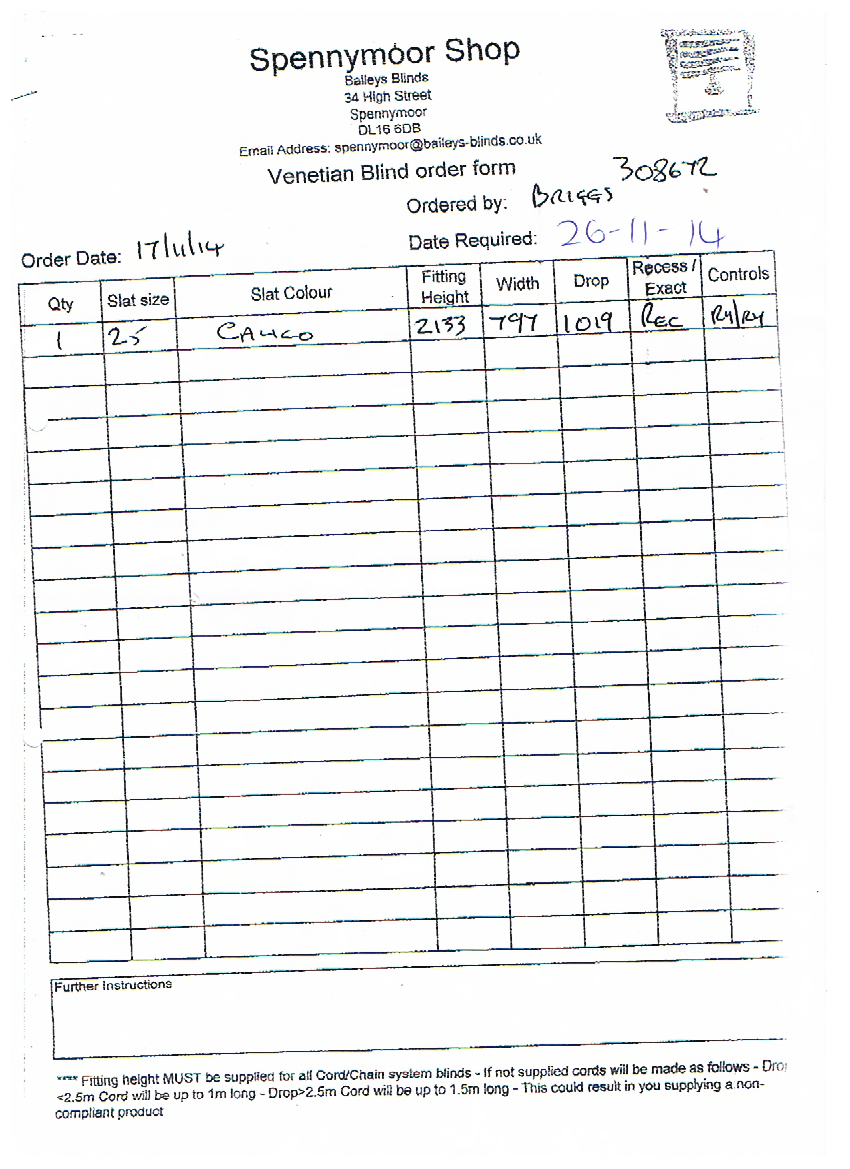 Spennymoor Shop
Baileys Blinds
34 High Street
Spennymoor
DL16 6DB
Email Address: spennymoor@baileys-blinds.co.uk
Venetian Blind order form
308672
Ordered by: BRIGGS
Order Date: 17/11/14
Date Required: 26-11-14
Qty Slat size Slat Colour Fitting Height Width Drop Recess / Exact Controls
1 25 CALICO 2133 797 1019 REC RH/RH
Further Instructions
**** Fitting height MUST be supplied for all Cord/Chain system blinds - If not supplied cords will be made as follows - Drop
<2.5m Cord will be up to 1m long - Drop>2.5m Cord will be up to 1.5m long - This could result in you supplying a non-
compliant product